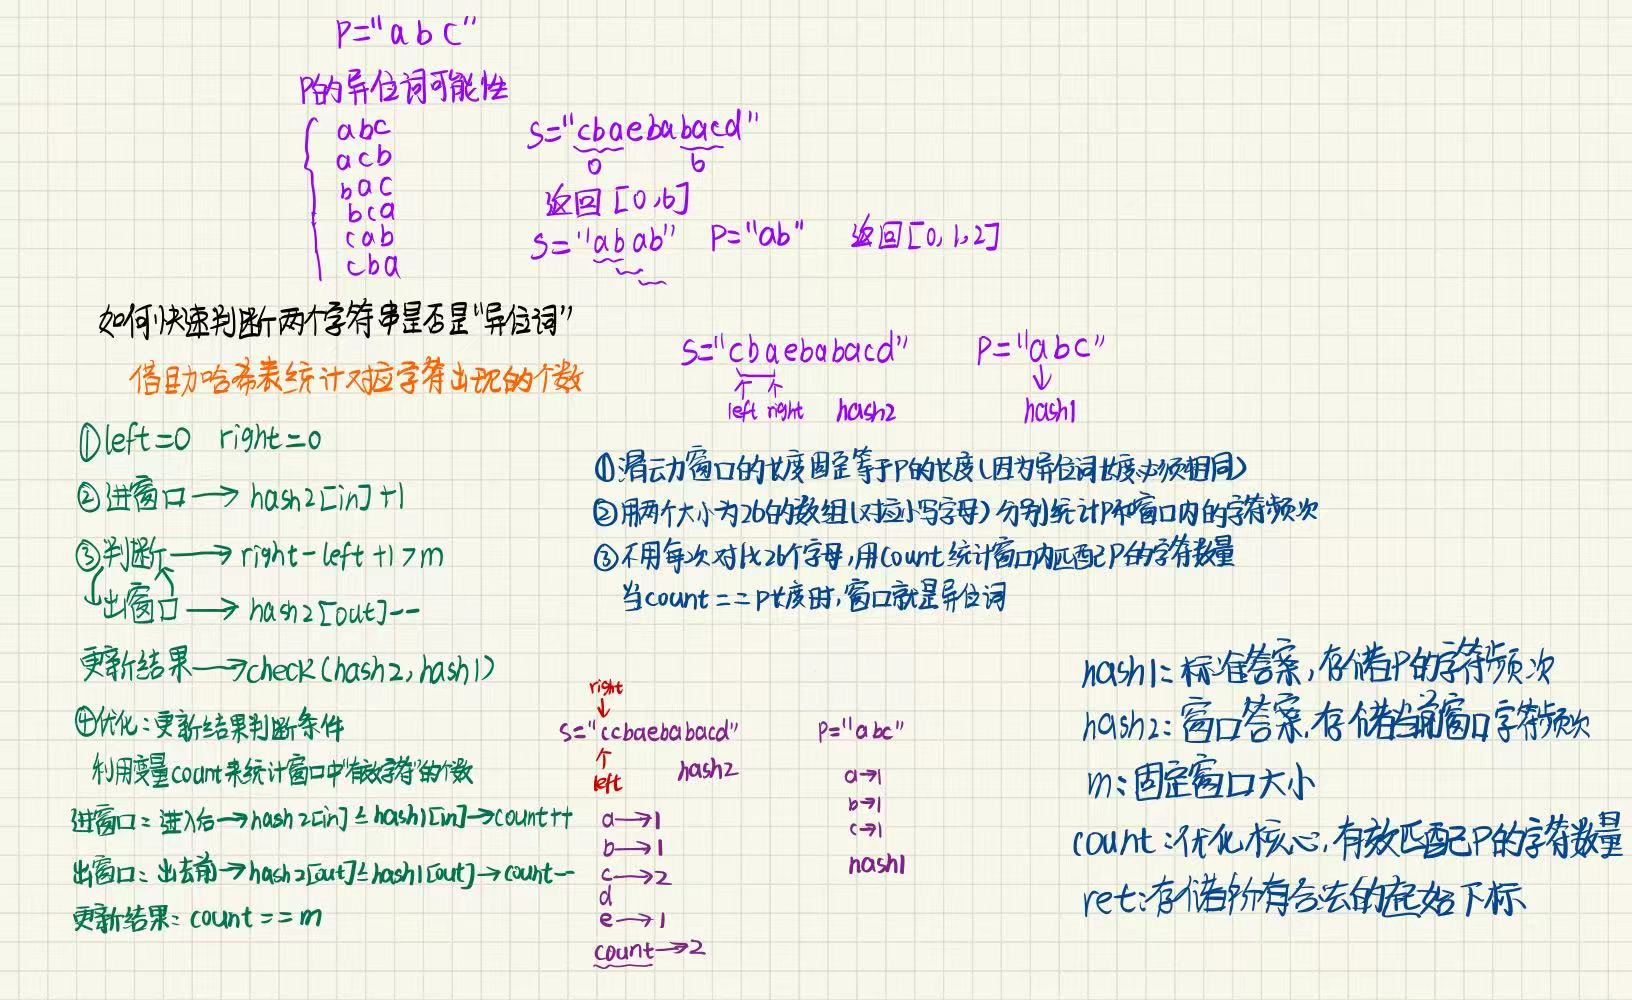 P="abc"
P的异位词可能性
abc
acb
bac
bca
cab
cba
S="cbaebabacd"
0 6
返回[0,6]
S="abab" P="ab" 返回[0,1,2]
如何快速判断两个字符串是否是"异位词"
借助哈希表统计对应字符出现的个数
①left=0 right=0
②进窗口→hash2[in]+1
③判断→right-left+1>m
出窗口→hash2[out]--
更新结果→check(hash2,hash1)
④优化:更新结果判断条件
利用变量count来统计窗口中"有效字符"的个数
进窗口:进入后→hash2[in]≤hash1[in]→count++
出窗口:出去前→hash2[out]≤hash1[out]→count--
更新结果:count==m
S="cbaebabacd" P="abc"
left right hash2 hash1
①滑动窗口的长度固定等于P的长度(因为异位词长度必须相同)
②用两个大小为26的数组(对应小写字母)分别统计P和窗口内的字符频次
③不用每次对比26个字母,用count统计窗口内匹配P的字符数量
当count==P长度时,窗口就是异位词
right
S="ccbaebabacd" P="abc"
left hash2
a→1
b→1
c→2
d
e→1
count→2
a→1
b→1
c→1
hash1
hash1:标准答案,存储P的字符频次
hash2:窗口答案,存储当前窗口字符频次
m:固定窗口大小
count:优化核心,有效匹配P的字符数量
ret:存储所有合法的起始下标